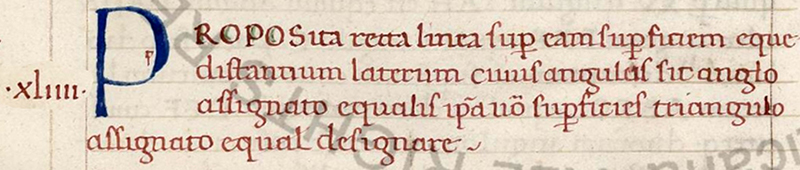 PROPOSita recta linea sup eam supficiem eque
·xliiii· distantium laterum cuius angulus sit anglo
assignato equalis ipa uo supficies triangulo
assignato equal designare